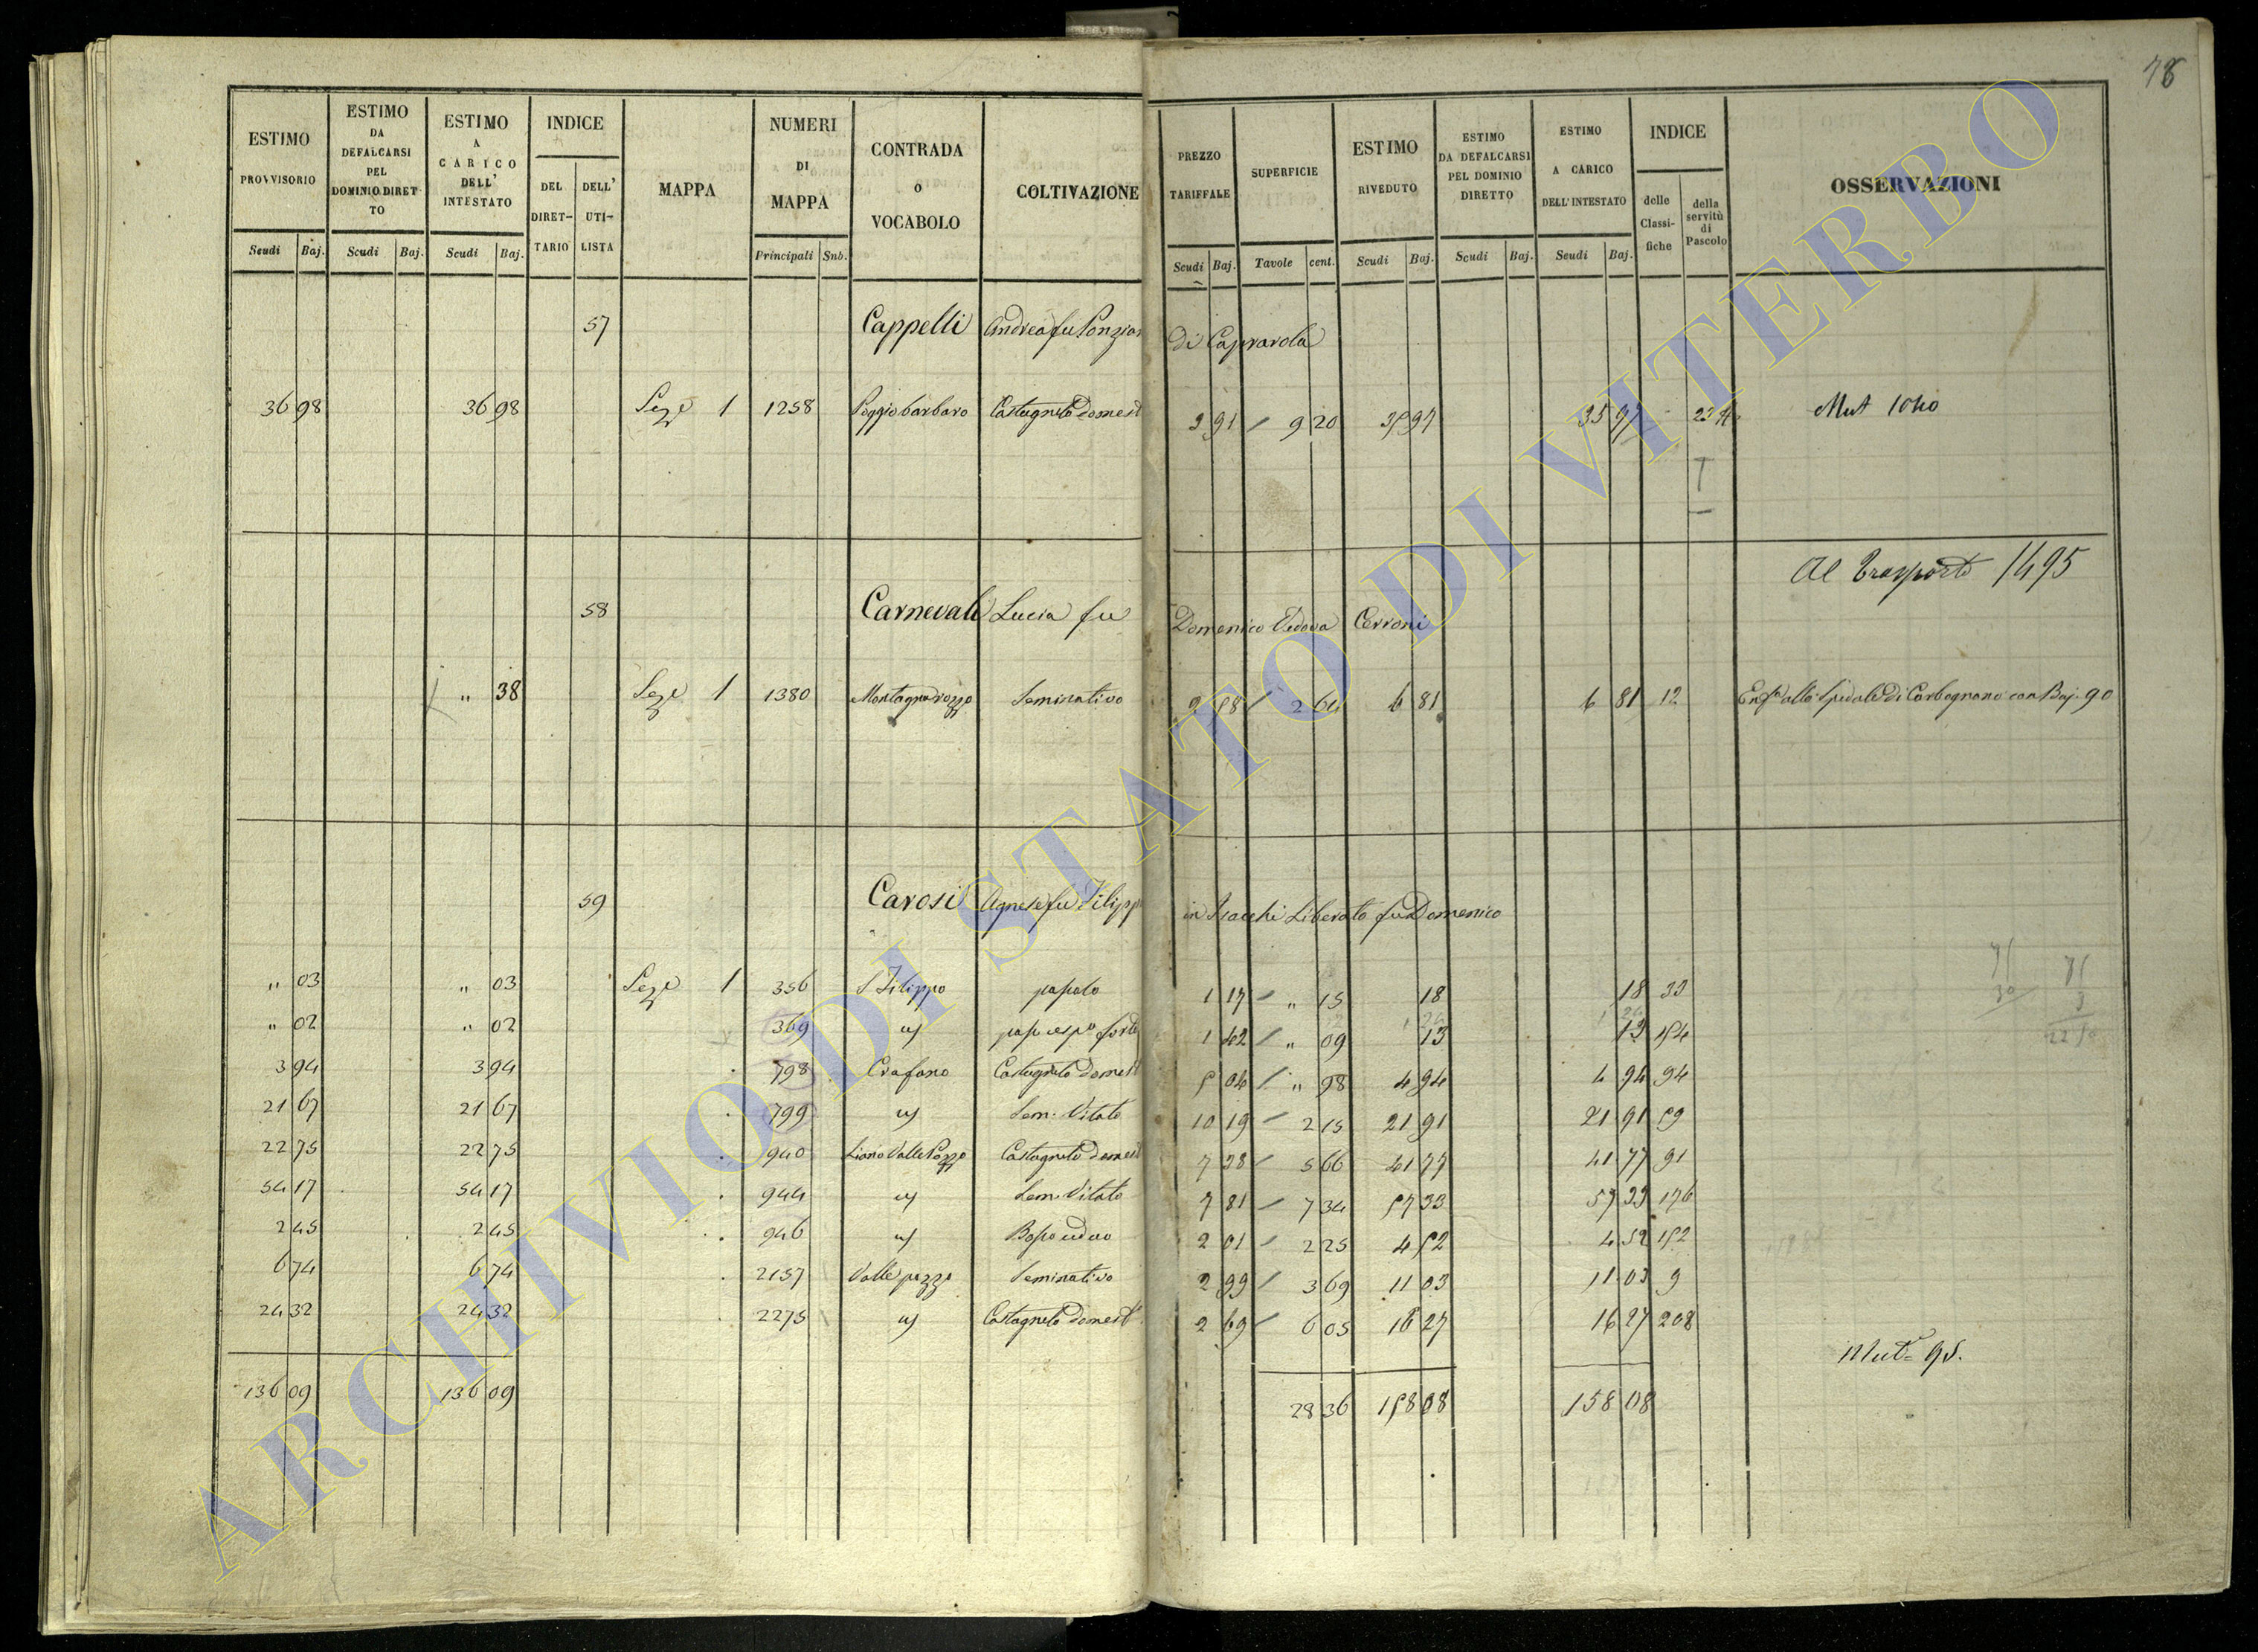 78
ESTIMO PROVVISORIO Scudi Baj.
ESTIMO DA DEFALCARSI PEL DOMINIO DIRETTO Scudi Baj.
ESTIMO A CARICO DELL' INTESTATO Scudi Baj.
INDICE DEL DIRET-TARIO DELL' UTI-LISTA
MAPPA
NUMERI DI MAPPA Principali Sub.
CONTRADA O VOCABOLO
COLTIVAZIONE
PREZZO TARIFFALE Scudi Baj.
SUPERFICIE Tavole cent.
ESTIMO RIVEDUTO Scudi Baj.
ESTIMO DA DEFALCARSI PEL DOMINIO DIRETTO Scudi Baj.
ESTIMO A CARICO DELL'INTESTATO Scudi Baj.
INDICE delle Classi-fiche della servitù di Pascolo
OSSERVAZIONI
57 Cappelli Andrea fu Ponzian di Caprarola
36 98 36 98 Sez.e 1 1258 Poggio barbaro Castagneto domest 3 91 9 20 35 97 35 97 Mut 1040
Al Trasporto 1495
58 Carnevali Lucia fu Domenico Vedova Cerroni
" 38 Sez.e 1 1380 Montagna rozza Seminativo 2 58 2 64 6 81 6 81 12 Enf.a allo Spedale di Carbognano con Baj. 90
59 Carosi Agnese fu Filipp in Isacchi Liberato fu Domenico
" 03 " 03 Sez.e 1 356 S Filippo pascolo 1 17 " 15 18 18 33
" 02 " 02 369 " 1 42 " 09 13 13 154
3 94 3 94 798 Crafano Castagneto domest 5 04 " 98 4 94 4 94 94
21 67 21 67 799 " Sem. Vitato 10 19 2 15 21 91 21 91 59
22 75 22 75 940 Liano Valle Pozzo Castagneto domest 7 38 5 66 41 77 41 77 91
54 17 54 17 944 " Sem. Vitato 7 81 7 34 57 33 57 33 176
2 45 2 45 946 " Bosco ceduo 2 01 2 25 4 52 4 52 152
6 74 6 74 2157 Valle pozzo Seminativo 2 99 3 69 11 03 11 03 9
24 32 24 32 2275 " Castagneto domest 2 69 6 05 16 27 16 27 208
Mut.e 95.
136 09 136 09 28 36 158 08 158 08
ARCHIVIO DI STATO DI VITERBO